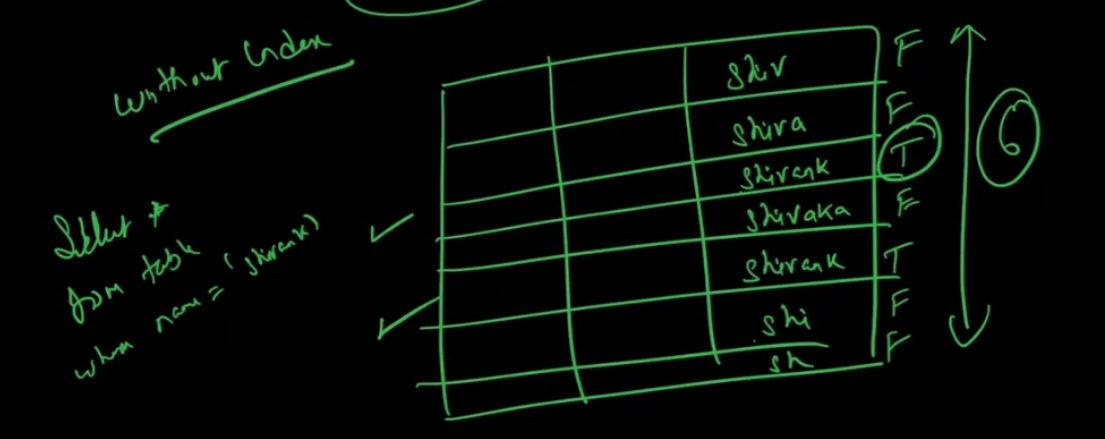 without Index
Select *
from table
where name = (shivank)
shiv F
shiva F
shivank T
shivaka F
shivank T
shi F
sh F
6